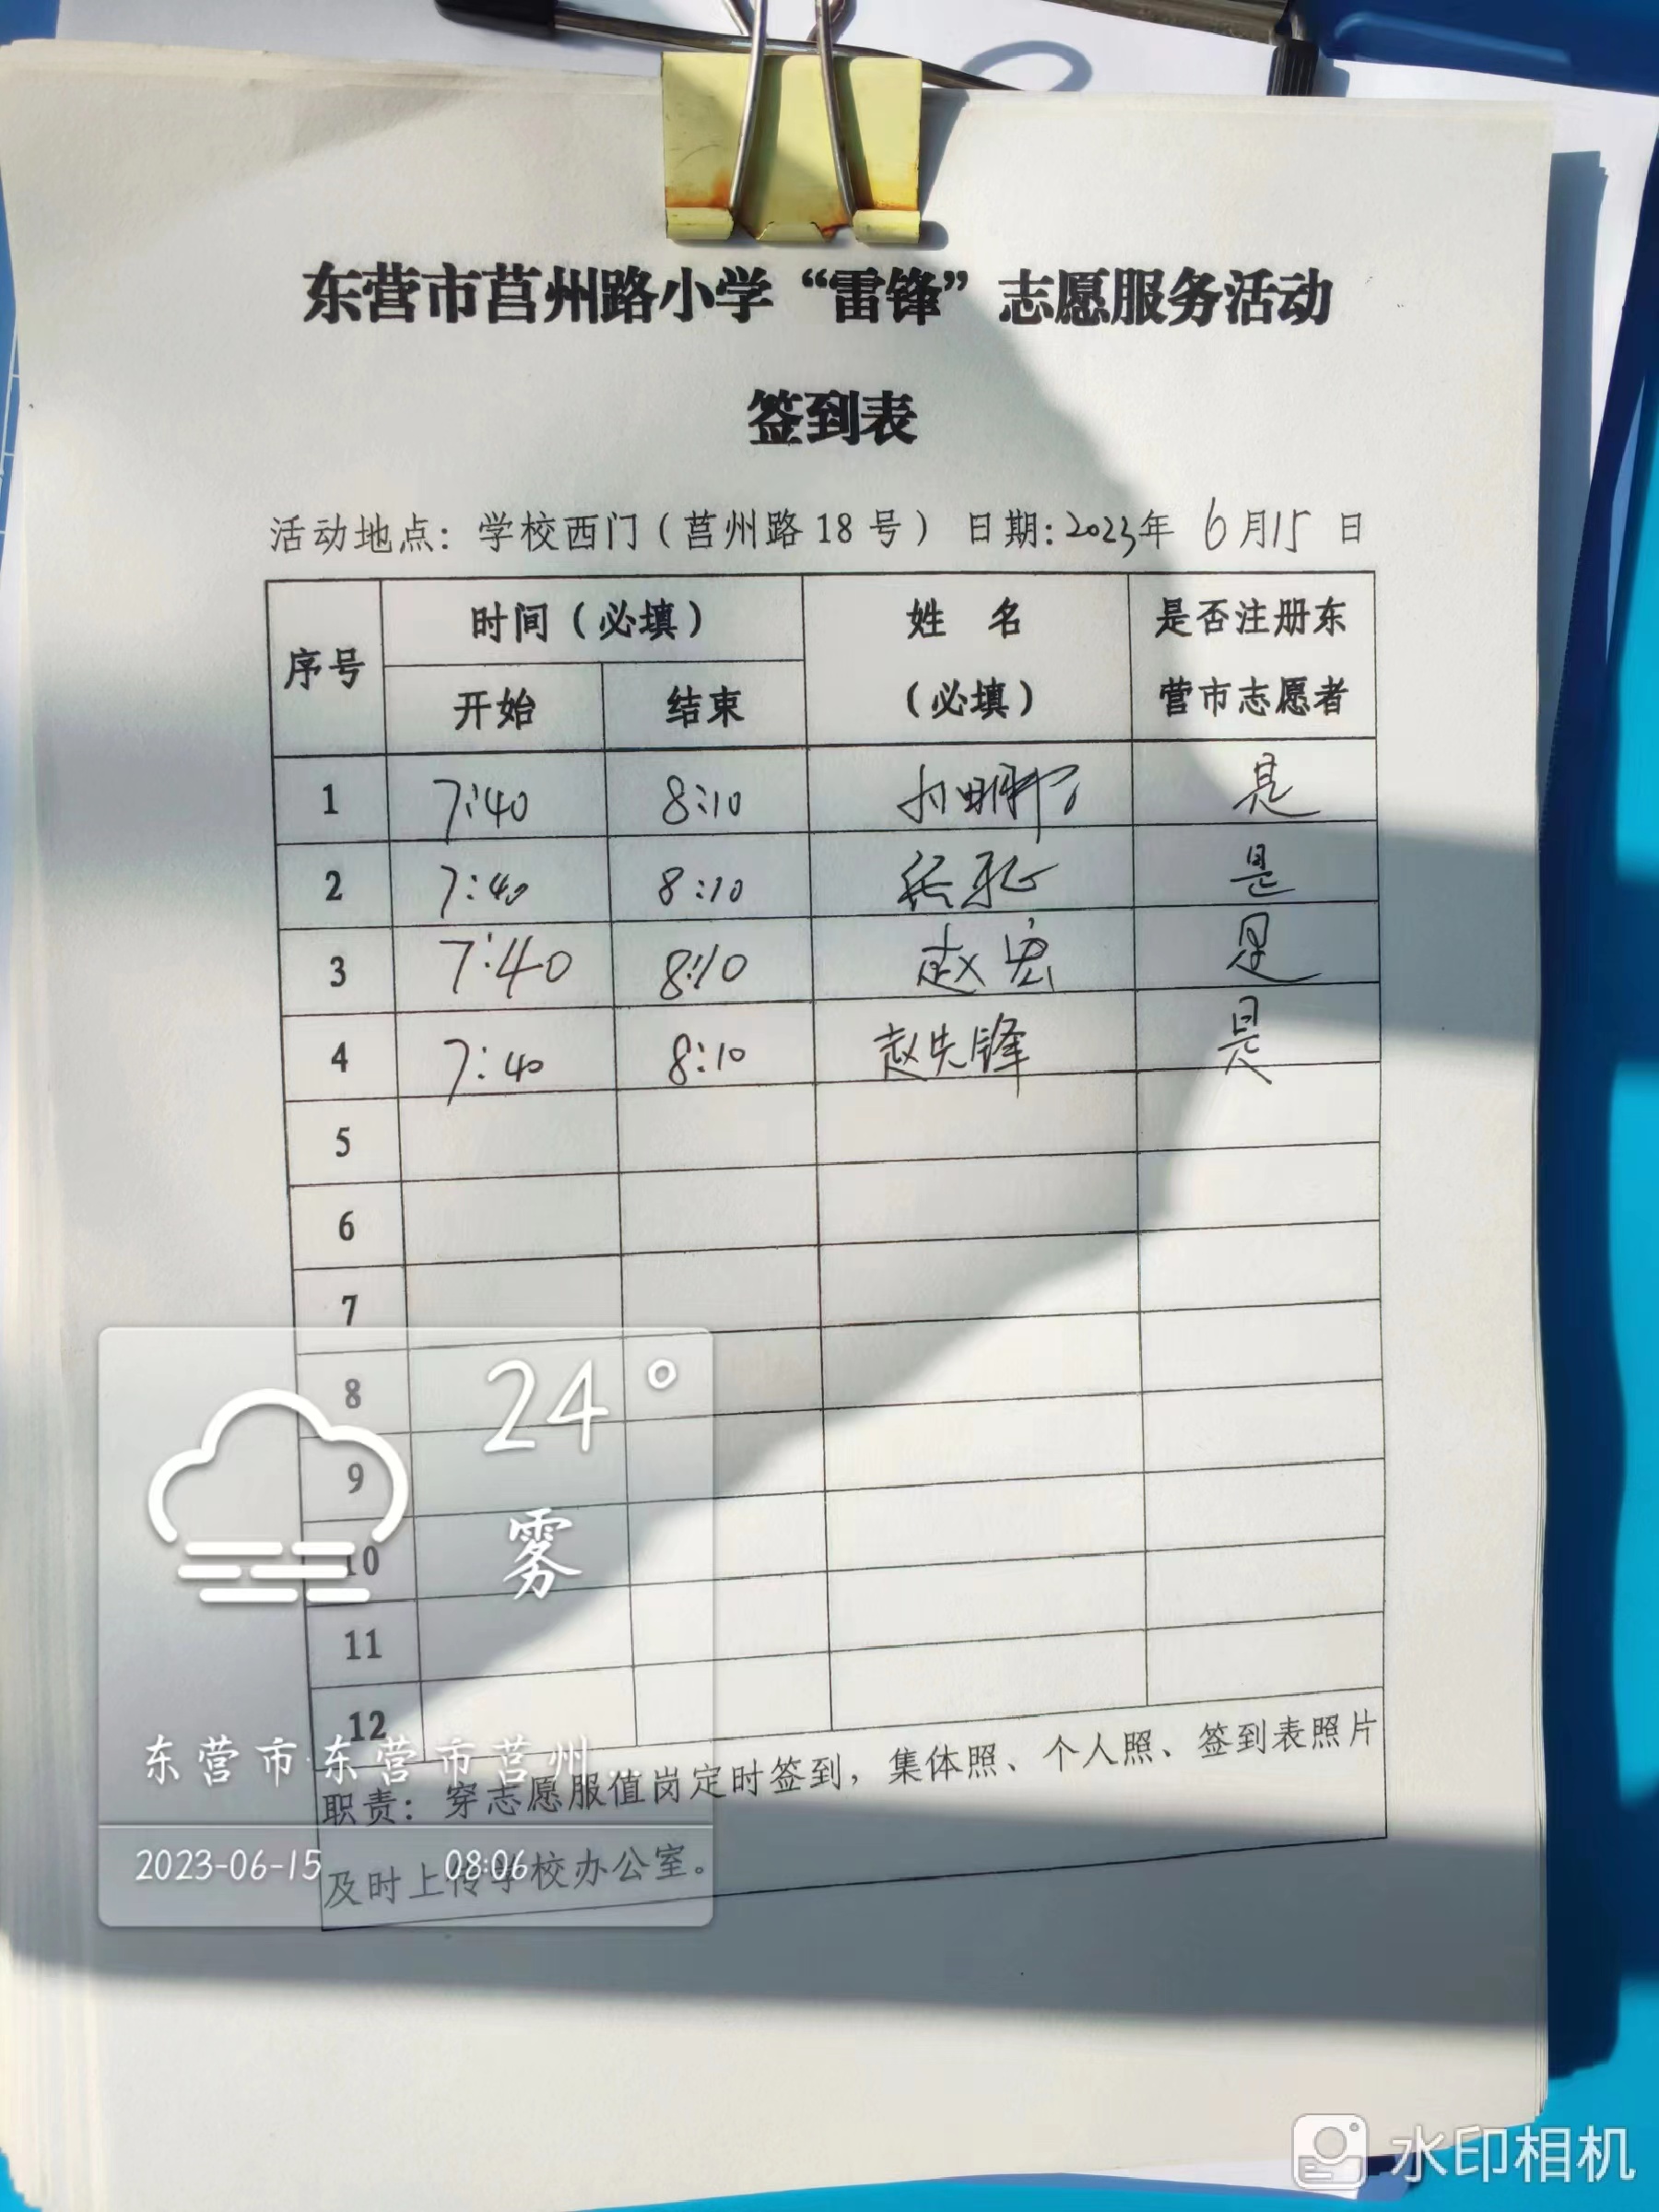 东营市莒州路小学“雷锋”志愿服务活动
签到表
活动地点：学校西门（莒州路18号） 日期:2023年 6月15日
序号 时间（必填） 姓 名（必填） 是否注册东营市志愿者
开始 结束
1 7:40 8:10 是
2 7:40 8:10 是
3 7:40 8:10 赵宏 是
4 7:40 8:10 赵先锋 是
5
6
7
8
9
10
11
12
职责：穿志愿服值岗定时签到，集体照、个人照、签到表照片
及时上传学校办公室。
24°
雾
东营市·东营市莒州...
2023-06-15 08:06
水印相机